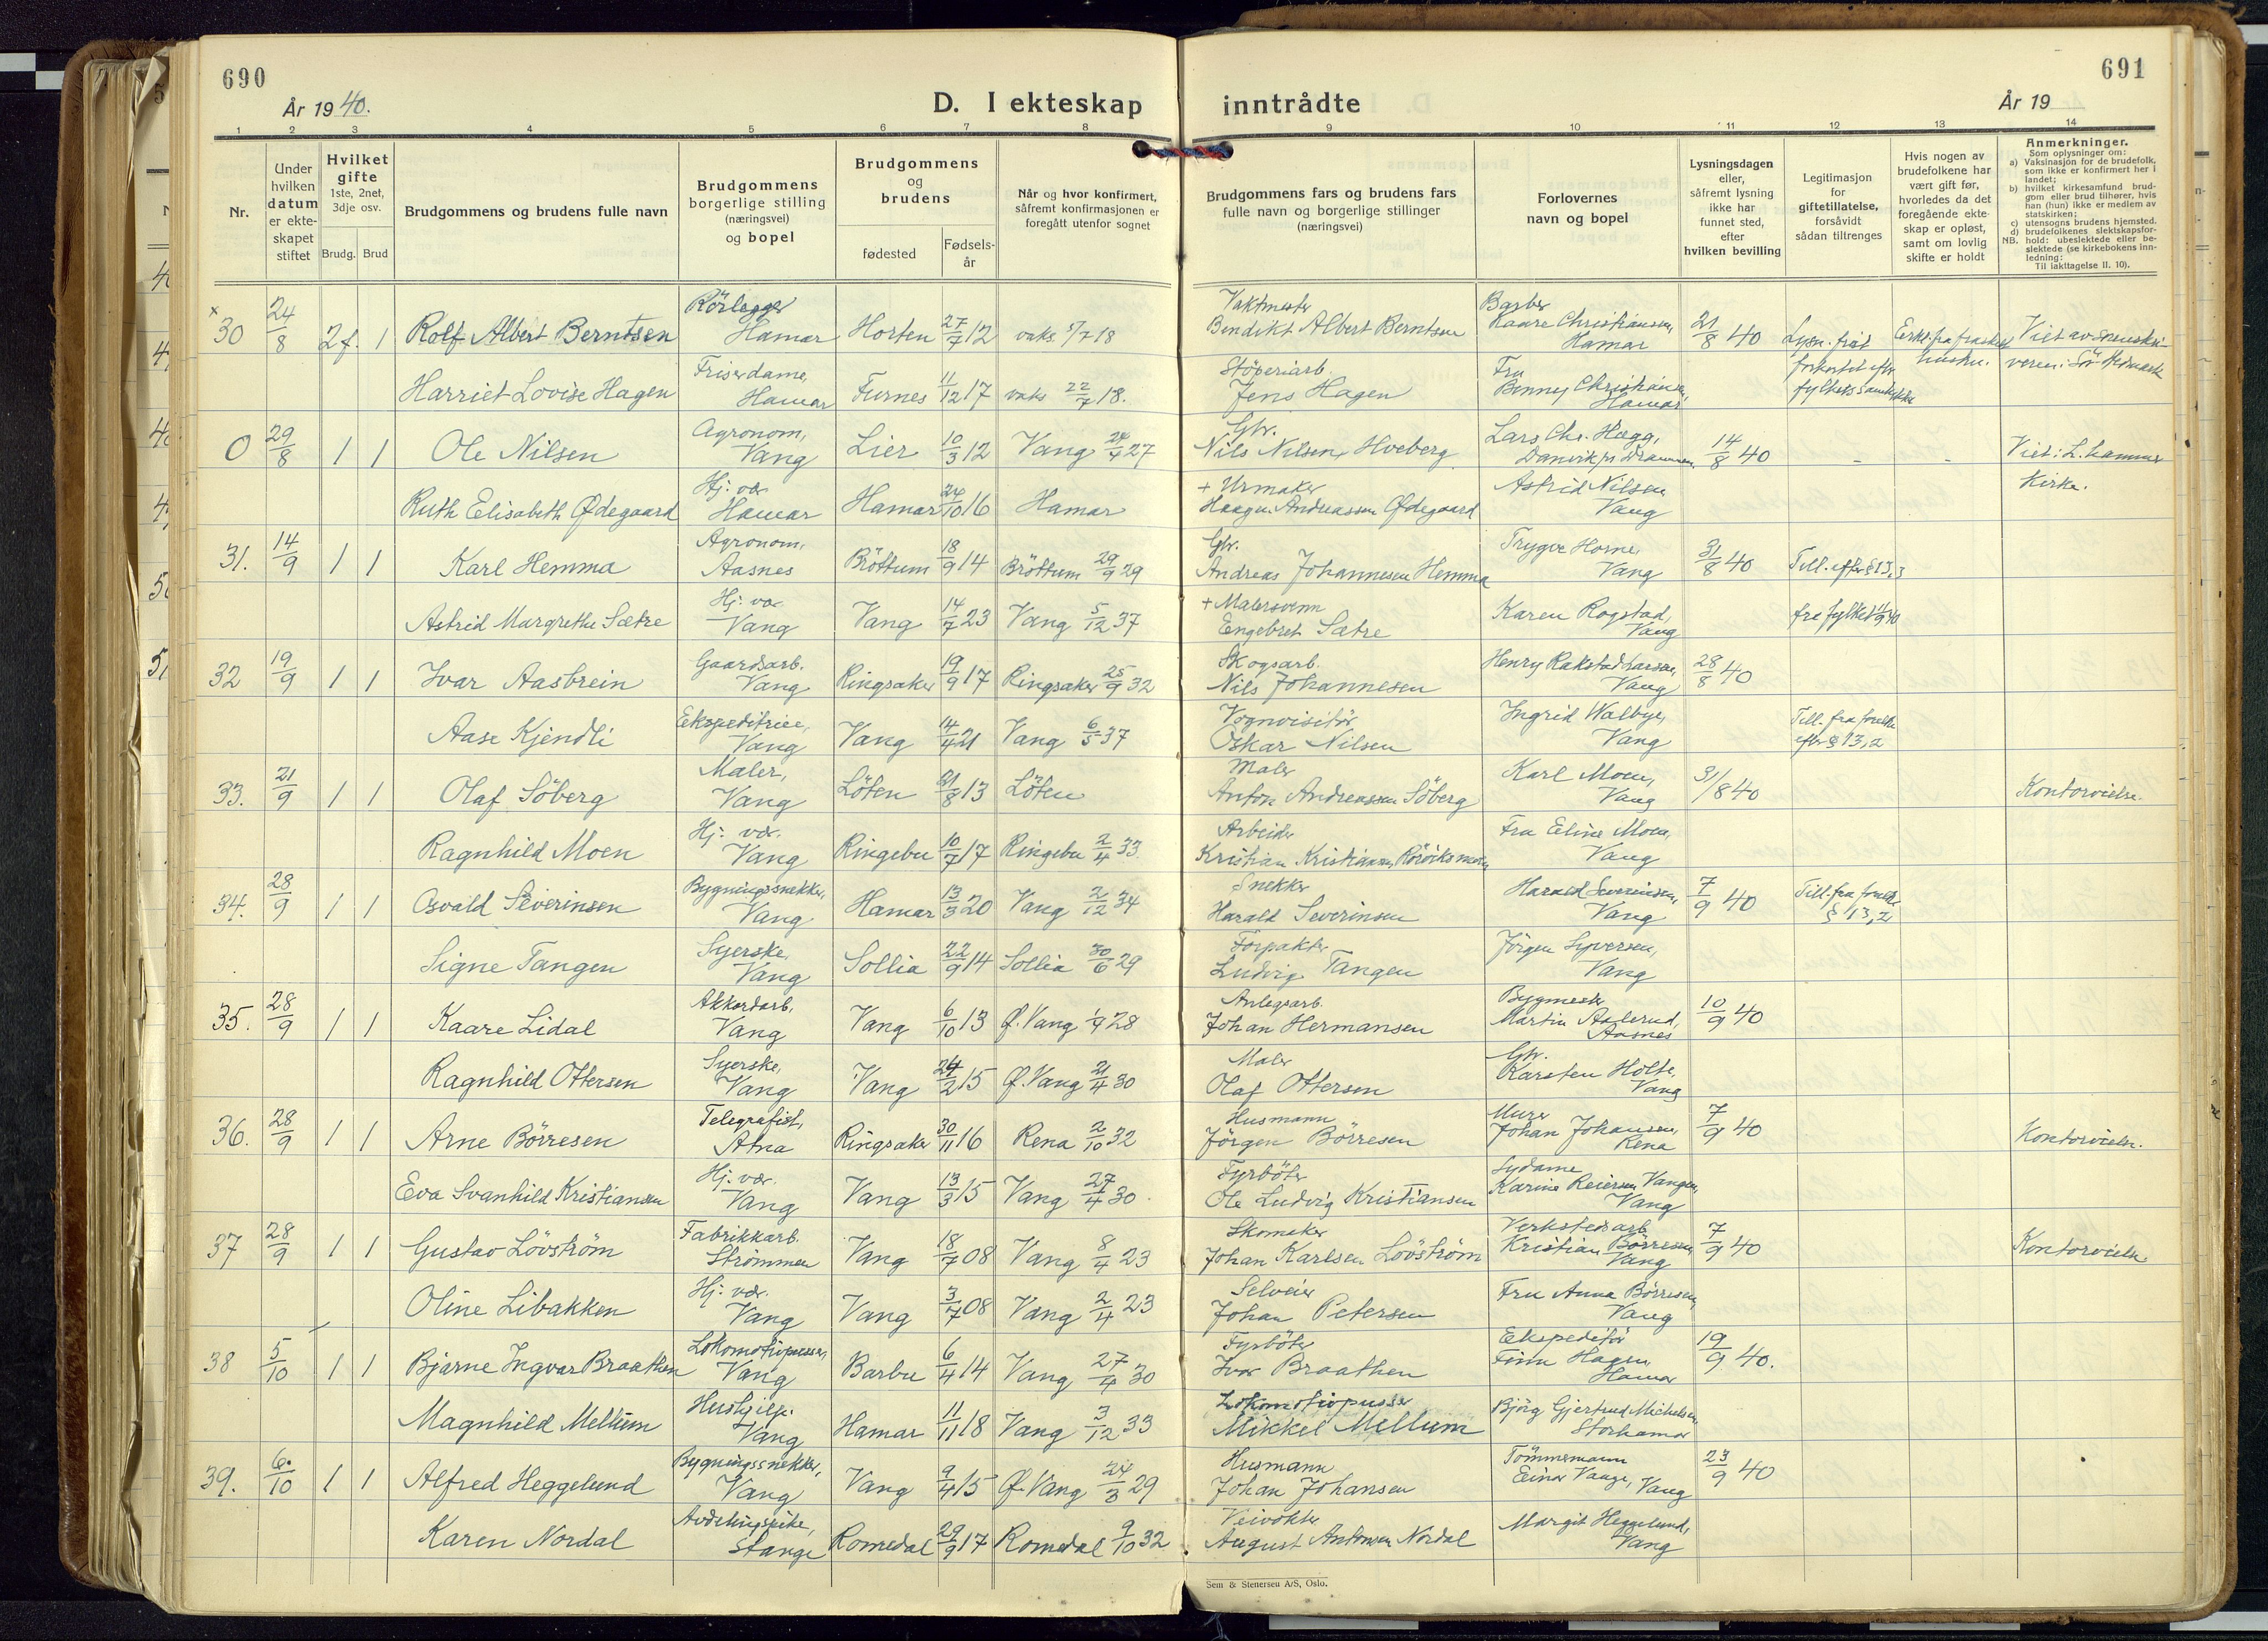 690
År 1940.
D. I ekteskap inntrådte
År 19
691
1 2 3 4 5 6 7 8 9 10 11 12 13 14
Nr.
Under hvilken datum er ekte-skapet stiftet
Hvilket gifte 1ste, 2net, 3dje osv.
Brudg. Brud
Brudgommens og brudens fulle navn
Brudgommens borgerlige stilling (næringsvei) og bopel
Brudgommens og brudens
fødested
Fødsels-år
Når og hvor konfirmert, såfremt konfirmasjonen er foregått utenfor sognet
Brudgommens fars og brudens fars fulle navn og borgerlige stillinger (næringsvei)
Forlovernes navn og bopel
Lysningsdagen eller, såfremt lysning ikke har funnet sted, efter hvilken bevilling
Legitimasjon for giftetillatelse, forsåvidt sådan tiltrenges
Hvis nogen av brudefolkene har vært gift før, hvorledes da det foregående ekte-skap er opløst, samt om lovlig skifte er holdt
Anmerkninger.
Som oplysninger om:
a) Vaksinasjon for de brudefolk, som ikke er konfirmert her i landet;
b) hvilket kirkesamfund brud-gom eller brud tilhører, hvis han (hun) ikke er medlem av statskirken;
c) utensogns brudens hjemsted.
d) brudefolkenes slektskapsfor-hold: ubeslektede eller be-slektede (se kirkebokens inn-ledning:
NB. Til iakttagelse II. 10).
x 30 24/8 2f. 1 Rolf Albert Berntsen Rörlegger Hamar Horten 27/7 12 vaks. 5/7 18 Vaktmester Bendikt Albert Berntsen Barber Kaare Christiansen, Hamar 21/8 40 Lysn. frist forkortet efter fylkets samtykke Erkl. fra fraskilt hustru. Viet av sorenskri- veren i Sör-Hedmark
Harriet Lovise Hagen Friserdame, Hamar Furnes 11/12 17 vaks 22/7 18. Støperiarb. Jens Hagen Fru Benny Christiansen, Hamar
0 29/8 1 1 Ole Nilsen Agronom, Vang Lier 10/3 12 Vang 24/4 27 Gbr. Nils Nilsen Hveberg Lars Chr. Hægg, Danvik pr Drammen 14/8 40 - - Viet i L.hammer Kirke.
Ruth Elisabeth Ødegaard Hj. vær. Hamar Hamar 24/10 16 Hamar + Urmaker Haagen Andreassen Ødegaard Astrid Nilsen Vang
31. 14/9 1 1 Karl Hemma Agronom, Aasnes Bröttum 18/9 14 Bröttum 29/9 29 Gbr. Andreas Johannesen Hemma Trygve Horne, Vang 31/8 40 Till. efter § 13,3 fra fylket 11/9 40
Astrid Margrethe Sætre Hj. vær Vang Vang 14/7 23 Vang 5/12 37 + Malersvenn Engebret Sætre Karen Rogstad, Vang
32 19/9 1 1 Ivar Aasbrein Gaardsarb. Vang Ringsaker 19/9 17 Ringsaker 25/9 32 Skogsarb. Nils Johannesen Henry Rakstad Larsen, Vang 28/8 40
Aase Kjendli Ekspeditrice, Vang Vang 14/4 21 Vang 6/5 37 Vognvisitör Oskar Nilsen Ingrid Walbye, Vang Till. fra foreldre efter § 13,2
33. 21/9 1 1 Olaf Söberg Maler, Vang Löten 21/8 13 Löten Maler Anton Andreassen Söberg Karl Moen, Vang 31/8 40 Kontorvielse.
Ragnhild Moen Hj. vær. Vang Ringebu 10/7 17 Ringebu 2/4 33 Arbeider Kristian Kristiansen Fru Eline Moen, Vang
34. 28/9 1 1 Osvald Severinsen Bygningssnekker, Vang Hamar 13/3 20 Vang 2/12 34 Snekker Harald Severinsen Harald Severinsen, Vang 7/9 40 Till. fra foreldre § 13,2
Signe Tangen Syerske, Vang Sollia 22/9 14 Sollia 30/6 29 Forpakter Ludvig Tangen Jörgen Syversen, Vang
35. 28/9 1 1 Kaare Lidal Akkordarb, Vang Vang 6/10 13 Ø. Vang 1/7 28 Anlegsarb. Johan Hermansen Bygmester Martin Aalerud, Aasnes 10/9 40
Ragnhild Ottersen Syerske, Vang Vang 24/2 15 Ø. Vang 21/4 30 Maler Olaf Ottersen Gbr. Karsten Holte, Vang
36. 28/9 1 1 Arne Börresen Telegrafist, Atna Ringsaker 30/11 16 Rena 2/10 32 Husmann Jörgen Börresen Murer Johan Johansen, Rena 7/9 40 Kontorvielse.
Eva Svanhild Kristiansen Hj. vær. Vang Vang 13/3 15 Vang 27/4 30. Fyrböter Ole Ludvig Kristiansen Sydame Karine Reiersen Vangen, Vang
37 28/9 1 1 Gustav Lövström Fabrikkarb. Strömmen Vang 18/7 08 Vang 8/4 23 Skomaker Johan Karlsen Lövström Verkstedsarb. Kristian Börresen, Vang 7/9 40 Kontorvielse.
Oline Libakken Hj. vær. Vang Vang 3/7 08 Vang 2/4 23 Selveier Johan Petersen Fru Anna Börresen, Vang
38 5/10 1 1 Bjarne Ingvar Braathen Lokomotivpusser, Vang Barbu 6/4 14 Vang 27/4 30 Fyrböter Ivar Braathen Ekspeditör Finn Hagen, Hamar 19/9 40.
Magnhild Mellum Hushjelp. Vang Hamar 11/11 18 Vang 3/12 33 Lokomotivpusser Mikkel Mellum Björg Gjertrud Michelsen Storhamar
39. 6/10 1 1 Alfred Heggelund Bygningssnekker, Vang Vang 9/4 15 Ø. Vang 24/3 29 Husmann Johan Johansen Tömmermann Einar Vange, Vang 23/9 40
Karen Nordal Avdelingspike, Stange Romedal 29/9 17 Romedal 9/10 32 Veivokter August Antonsen Nordal Margit Heggelund, Vang
Sem & Stenersen A/S, Oslo.